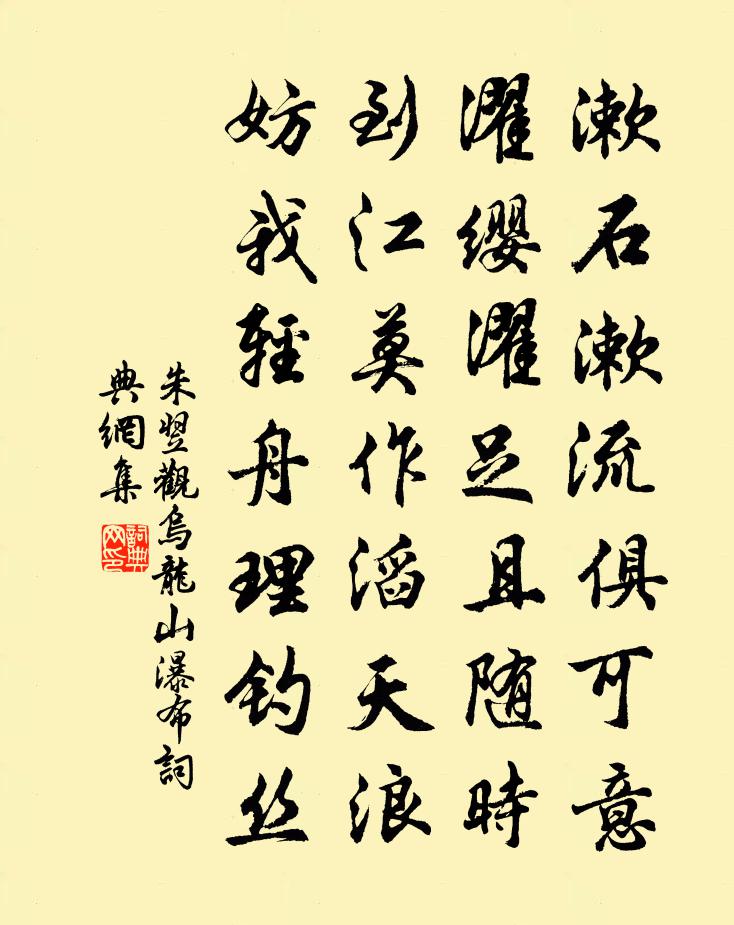 漱石漱流俱可意
濯缨濯足且随時
到江莫作滔天浪
妨我輕舟理钓丝
朱翌觀烏龍山瀑布詞
典網集
詞典
网印